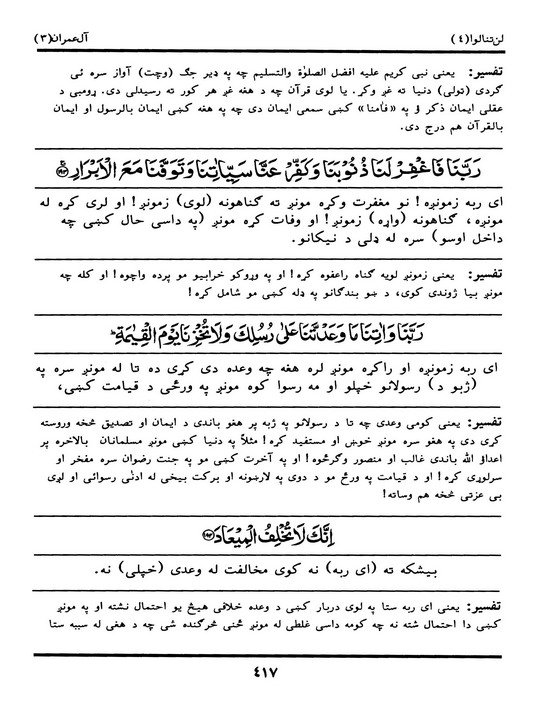 لن تنالوا(٤) آل عمران(٣)
تفسیر: یعنی نبی کریم علیه افضل الصلوٰة والتسلیم چه په ډیر جګ (وچت) آواز سره ئی
ګردی (ټولی) دنیا ته غږ وکړ. یا لوی قرآن چه د هغه غږ هر کور ته رسیدلی دی. ړومبی د
عقلی ایمان ذکر ؤ په «فأمنا» کښی سمعی ایمان دی چه په هغه کښی ایمان بالرسول او ایمان
بالقرآن هم درج دی.
رَبَّنَا فَاغْفِرْ لَنَا ذُنُوْبَنَا وَكَفِّرْ عَنَّا سَيِّاٰتِنَا وَتَوَفَّنَا مَعَ الْاَبْرَارِ
ای ربه زمونږه! نو مغفرت وکړه مونږ ته ګناهونه (لوی) زمونږ! او لری کړه له
مونږه، ګناهونه (واړه) زمونږ! او وفات کړه مونږ (په داسی حال کښی چه
داخل اوسو) سره له ډلی د نیکانو.
تفسیر: یعنی زمونږ لویه ګناه راعفوه کړه! او په وړوکو خرابیو مو پرده واچوه! او کله چه
مونږ بیا ژوندی کوی، د ښو بندګانو په ډله کښی مو شامل کړه!
رَبَّنَا وَاٰتِنَا مَا وَعَدْتَّنَا عَلٰى رُسُلِكَ وَلَا تُخْزِنَا يَوْمَ الْقِيٰمَةِ
ای ربه زمونږه او راکړه مونږ لره هغه چه وعده دی کړی ده تا له مونږ سره په
(ژبو د) رسولانو خپلو او مه رسوا کوه مونږ په ورځی د قیامت کښی،
تفسیر: یعنی کومی وعدی چه تا د رسولانو په ژبه پر هغو باندی د ایمان او تصدیق څخه وروسته
کړی دی په هغو سره مونږ خوښ او مستفید کړه! مثلاً په دنیا کښی مونږ مسلمانان بالاخره پر
اعداؤ الله باندی غالب او منصور وګرځوه! او په آخرت کښی مو په جنت رضوان سره مفخر او
سرلوړی کړه! او د قیامت په ورځ مو د دوی په لارښونه او برکت بیخی له ادنٰی رسوائی او لږی
بی عزتی څخه هم وساته!
اِنَّكَ لَا تُخْلِفُ الْمِيْعَادَ
بیشکه ته (ای ربه) نه کوی مخالفت له وعدی (خپلی) نه.
تفسیر: یعنی ای ربه ستا په لوی دربار کښی د وعده خلافی هیڅ یو احتمال نشته او په مونږ
کښی دا احتمال شته نه چه کومه داسی غلطی له مونږ څخی څرګنده شی چه د هغی له سببه ستا
٤١٧